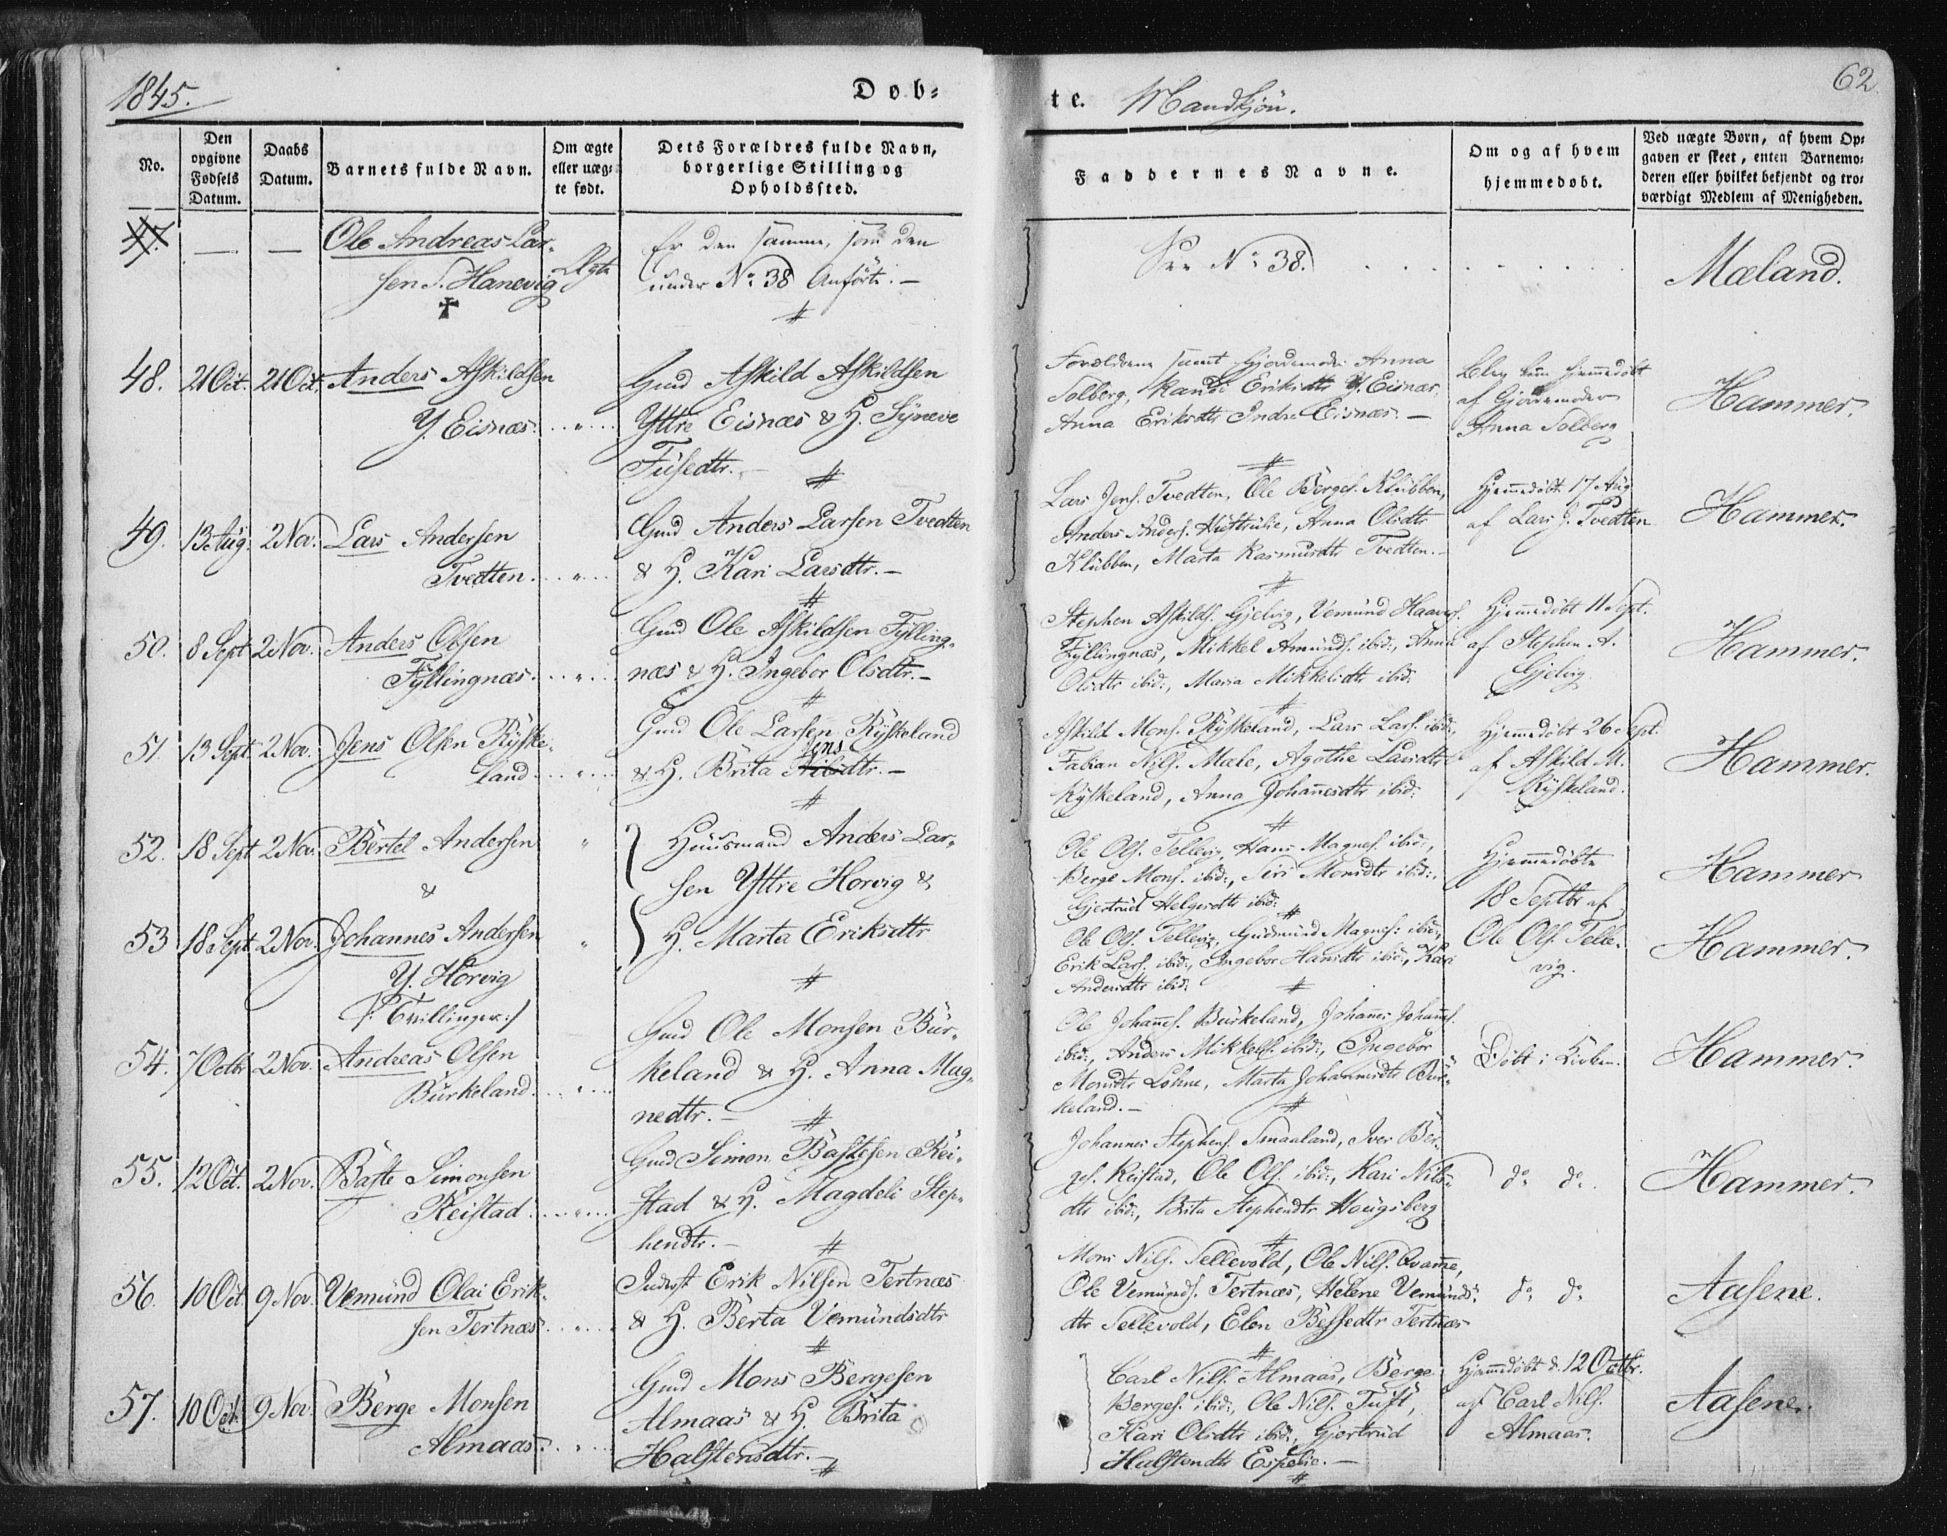 1845.
Døb-
te. Mandkjön.
62.
No.
Den opgivne Fødsels Datum.
Daabs Datum.
Barnets fulde Navn.
Om ægte eller uæg- te født.
Dets Forældres fulde Navn, borgerlige Stilling og Opholdssted.
Faddernes Navne.
Om og af hvem hjemmedøbt.
Ved uægte Børn, af hvem Op- gaven er skeet, enten Barnemo- deren eller hvilket bekjendt og tro- værdigt Medlem af Menigheden.
47. — — Ole Andreas Lar-
sen S. Hanevig
Ægte
Er den samme, som den
under No 38 Anførte. —
See No 38.
Mæland.
48. 21 Oct. 21 Oct. Anders Askildsen
Y. Eisnæs.
Gmd Askild Askildsen
Yttre Eisnæs & H. Syneve
Fusedtr.
Forældrene samt Gjordemoder Anna
Solberg, Randi Eriksdtr Y. Eisnæs,
Anna Eriksdtr Indre Eisnæs. —
Blev kun hjemmedøbt
af Gjordemoder
Anna Solberg
Hammer.
49. 13 Aug. 2 Nov. Lars Andersen
Tvedten.
Gmd Anders Larsen Tvedten
& H. Kari Larsdtr. —
Lars Jens. Tvedten, Ole Berges. Klubben,
Anders Anders. Anna Olsdtr
Klubben, Marta Rasmusdtr Tvedten. —
Hjemmedøbt 17 Aug
af Lars J. Tvedten
Hammer.
50. 8 Sept 2 Nov. Anders Olsen
Fyllingnæs.
Gmd Ole Askildsen Fylling-
næs & H. Ingebor Olsdtr. —
Stephen Askilds. Gjelvig, Vemund Haavs.
Fyllingnæs, Mikkel Amunds. ibid:, Anna
Olsdtr ibid:, Maria Mikkelsdtr ibid:
Hjemmedøbt 11 Sept.
af Stephen A.
Gjelvig.
Hammer.
51. 13 Sept. 2 Nov. Jens Olsen Ryske-
land.
Gmd Ole Larsen Ryskeland
& H. Brita Jensdtr. —
Askild Mons. Ryskeland, Lars Lars. ibid:,
Fabian Nils. Mæle, Agathe Larsdtr
Ryskeland, Anna Johannesdtr ibid:
Hjemmedøbt 26 Sept.
af Askild M.
Ryskeland.
Hammer.
52. 18 Sept 2 Nov. Bertel Andersen
&
Huusmand Anders Lar-
sen Yttre Horvig &
Ole Ols. Tellevig, Hans Magnes. ibid:,
Berge Mons. ibid:, Siri Monsdtr ibid:,
Gjertrud Helgesdtr ibid:
Hjemmedøbte
18 Septbr af
Hammer
53 18 Sept. 2 Nov. Johannes Andersen
Y. Horvig
/: Tvillinger :/
H. Marta Eriksdtr
Ole Ols. Tellevig, Gudmund Magnes: ibid:,
Erik Lars. ibid:, Ingebor Hansdtr ibid:, Kari
Andersdtr ibid:
Ole Ols. Telle-
vig.
Hammer.
54. 7 Octbr 2 Nov. Andreas Olsen
Burkeland.
Gmd Ole Monsen Bur-
keland & H. Anna Mag-
nedtr. —
Ole Johans. Burkeland, Johannes Johans.
ibid:, Anders Mikkels. ibid:, Ingebor
Monsdtr Lohne, Marta Johannesdtr Bur-
keland. —
Døbt i Kirken.
Hammer.
55. 12 Oct. 2 Nov. Baste Simonsen
Reistad.
Gmd Simon Bastesen Rei-
stad & H. Magdeli Step-
hendtr. —
Johannes Stephens. Smaaland, Iver Ber-
ges. Reistad, Ole Ols. ibid:, Kari Nils-
dtr ibid:, Brita Stephendtr Hougsberg
do do
Hammer.
56. 10 Oct. 9 Nov. Vemund Olai Erik-
sen Tertnæs.
Indst Erik Nilsen Tertnæs
& H. Berta Vemundsdtr
Mons Nils. Sellevold, Ole Nils. Qvamme,
Ole Vemunds. Tertnæs, Helene Vemunds-
dtr Sellevold, Elen Bessedtr Tertnæs
do do
Aasene.
57. 10 Oct. 9 Nov. Berge Monsen
Almaas.
Gmd Mons Bergesen
Almaas & H. Brita
Halstensdtr. —
Carl Nils. Almaas, Berge
Berges. ibid:, Ole Nils. Tuft,
Kari Olsdtr ibid:, Gjertrud
Halstendtr Espelie. —
Hjemmedøbt d. 12 Octbr.
af Carl Nils.
Almaas.
Aasene.